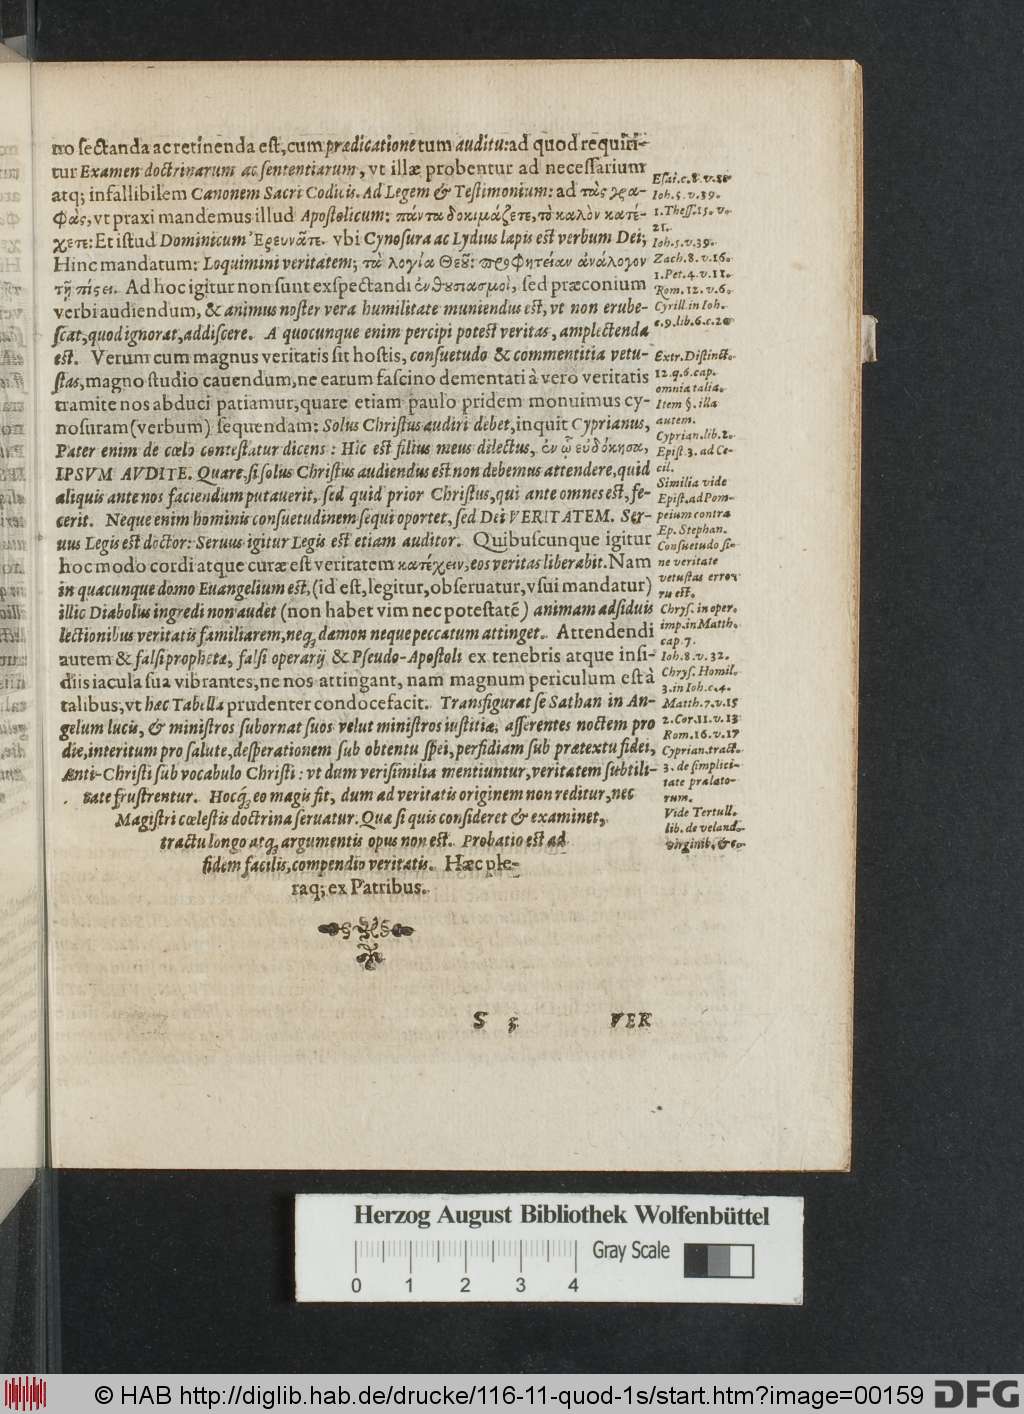 tro sectanda ac retinenda est, cum prædicatione tum auditu: ad quod requiri-
tur Examen doctrinarum ac sententiarum, vt illæ probentur ad necessarium
atq; infallibilem Canonem Sacri Codicis. Ad Legem & Testimonium: ad τὰς γρα-
φὰς, vt praxi mandemus illud Apostolicum: πάντα δοκιμάζετε, τὸ καλὸν κατέ-
χετε: Et istud Dominicum Ἐρευνᾶτε. vbi Cynosura ac Lydius lapis est verbum Dei;
Hinc mandatum: Loquimini veritatem; τὰ λογία Θεοῦ: προφητείαν ἀνάλογον
τῇ πίστει. Ad hoc igitur non sunt exspectandi ἐνθυσιασμοὶ, sed præconium
verbi audiendum, & animus noster vera humilitate muniendus est, vt non erube-
scat, quod ignorat, addiscere. A quocunque enim percipi potest veritas, amplectenda
est. Verum cum magnus veritatis sit hostis, consuetudo & commentitia vetu-
stas, magno studio cauendum, ne earum fascino dementati à vero veritatis
tramite nos abduci patiamur, quare etiam paulo pridem monuimus cy-
nosuram (verbum) sequendam: Solus Christus audiri debet, inquit Cyprianus,
Pater enim de cœlo contestatur dicens: Hic est filius meus dilectus, ἐν ᾧ εὐδόκησα,
IPSVM AVDITE. Quare, si solus Christus audiendus est non debemus attendere, quid
aliquis ante nos faciendum putauerit, sed quid prior Christus, qui ante omnes est, fe-
cerit. Neque enim hominis consuetudinem sequi oportet, sed Dei VERITATEM. Ser-
uus Legis est doctor: Seruus igitur Legis est etiam auditor. Quibuscunque igitur
hoc modo cordi atque curæ est veritatem κατέχειν, eos veritas liberabit. Nam
in quacunque domo Euangelium est, (id est, legitur, obseruatur, vsui mandatur)
illic Diabolus ingredi non audet (non habet vim nec potestatẽ) animam adsiduis
lectionibus veritatis familiarem, neq; dæmon neque peccatum attinget. Attendendi
autem & falsi prophetæ, falsi operarij & Pseudo-Apostoli ex tenebris atque insi-
diis iacula sua vibrantes, ne nos attingant, nam magnum periculum est à
talibus, vt hæc Tabella prudenter condocefacit. Transfigurat se Sathan in An-
gelum lucis, & ministros subornat suos velut ministros iustitiæ, asserentes noctem pro
die, interitum pro salute, desperationem sub obtentu spei, perfidiam sub prætextu fidei,
Anti-Christi sub vocabulo Christi: vt dum verisimilia mentiuntur, veritatem subtili-
tate frustrentur. Hocq; eo magis fit, dum ad veritatis originem non reditur, nec
Magistri cœlestis doctrina seruatur. Quæ si quis consideret & examinet,
tractu longo atq; argumentis opus non est. Probatio est ad
fidem facilis, compendio veritatis. Hæc ple-
raq; ex Patribus.
S 3 VER
Esai. c. 8. v. 20
Ioh. 5. v. 39.
1. Thess. 5. v.
21.
Ioh. 5. v. 39.
Zach. 8. v. 16.
1. Pet. 4. v. 11.
Rom. 12. v. 6.
Cyrill. in Ioh.
c. 9. lib. 6. c. 20
Extr. Distinct.
12. q. 6. cap.
omnia talia.
Item §. illa
autem.
Cyprian. lib. 2.
Epist. 3. ad Ce-
cil.
Similia vide
Epist. ad Pom-
peium contra
Ep. Stephan.
Consuetudo si-
ne veritate
vetustas erro-
ru est.
Chrys. in oper.
imp. in Matth.
cap. 7.
Ioh. 8. v. 32.
Chrys. Homil.
3. in Ioh. c. 4.
Matth. 7. v. 15
2. Cor. 11. v. 13
Rom. 16. v. 17
Cyprian. tract.
3. de simplici-
tate prælato-
rum.
Vide Tertull.
lib. de veland.
virginib. &c.
Herzog August Bibliothek Wolfenbüttel
Gray Scale
0 1 2 3 4
© HAB http://diglib.hab.de/drucke/116-11-quod-1s/start.htm?image=00159
DFG